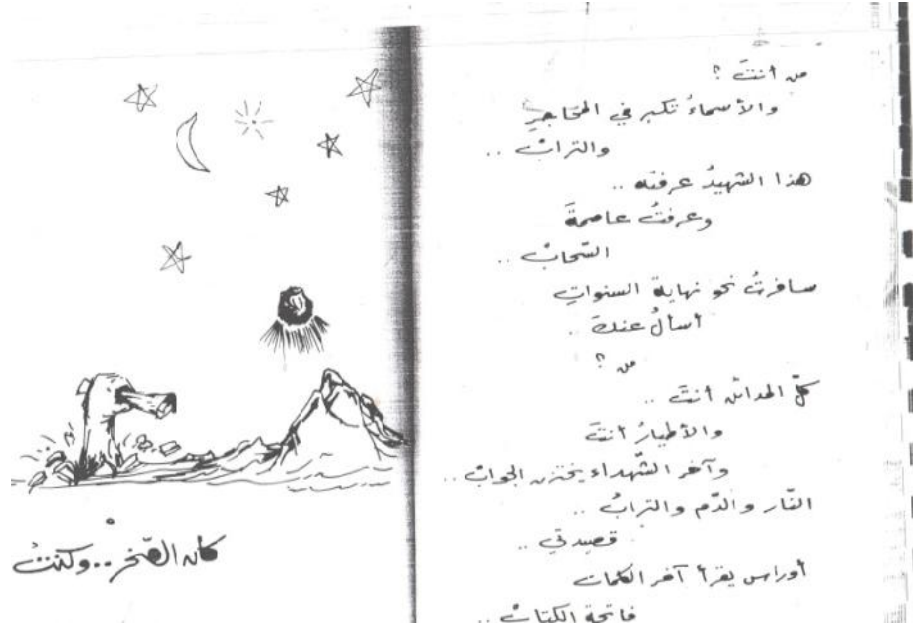 من أنتَ ؟
والأسماءُ تكبر في المحَاجرِ
والترابْ ..
هذا الشهيدُ عرفته ..
وعرفتُ عاصمةَ
السّحابْ ..
سافرتُ نحو نهاية السنواتِ
أسألُ عنكَ ..
من ؟
كلّ الحدائق أنتَ ..
والأطيارُ أنتَ
وآخر الشّهداء يختزن الجوابْ ..
النّار والدّم والترابُ ..
قصيدتي ..
أوراس يقرأ آخر الكلمات
فاتحة الكتابْ ..
كان الصّخر .. وكنتُ